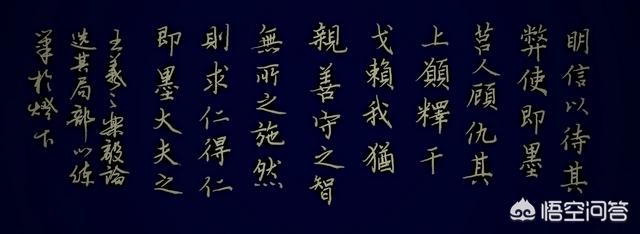 明信以待其
弊使即墨
莒人顧仇其
上願釋干
戈賴我猶
親善守之智
無所之施然
則求仁得仁
即墨大夫之
王羲之樂毅論
选其局部以练
筆於燈下
悟空问答